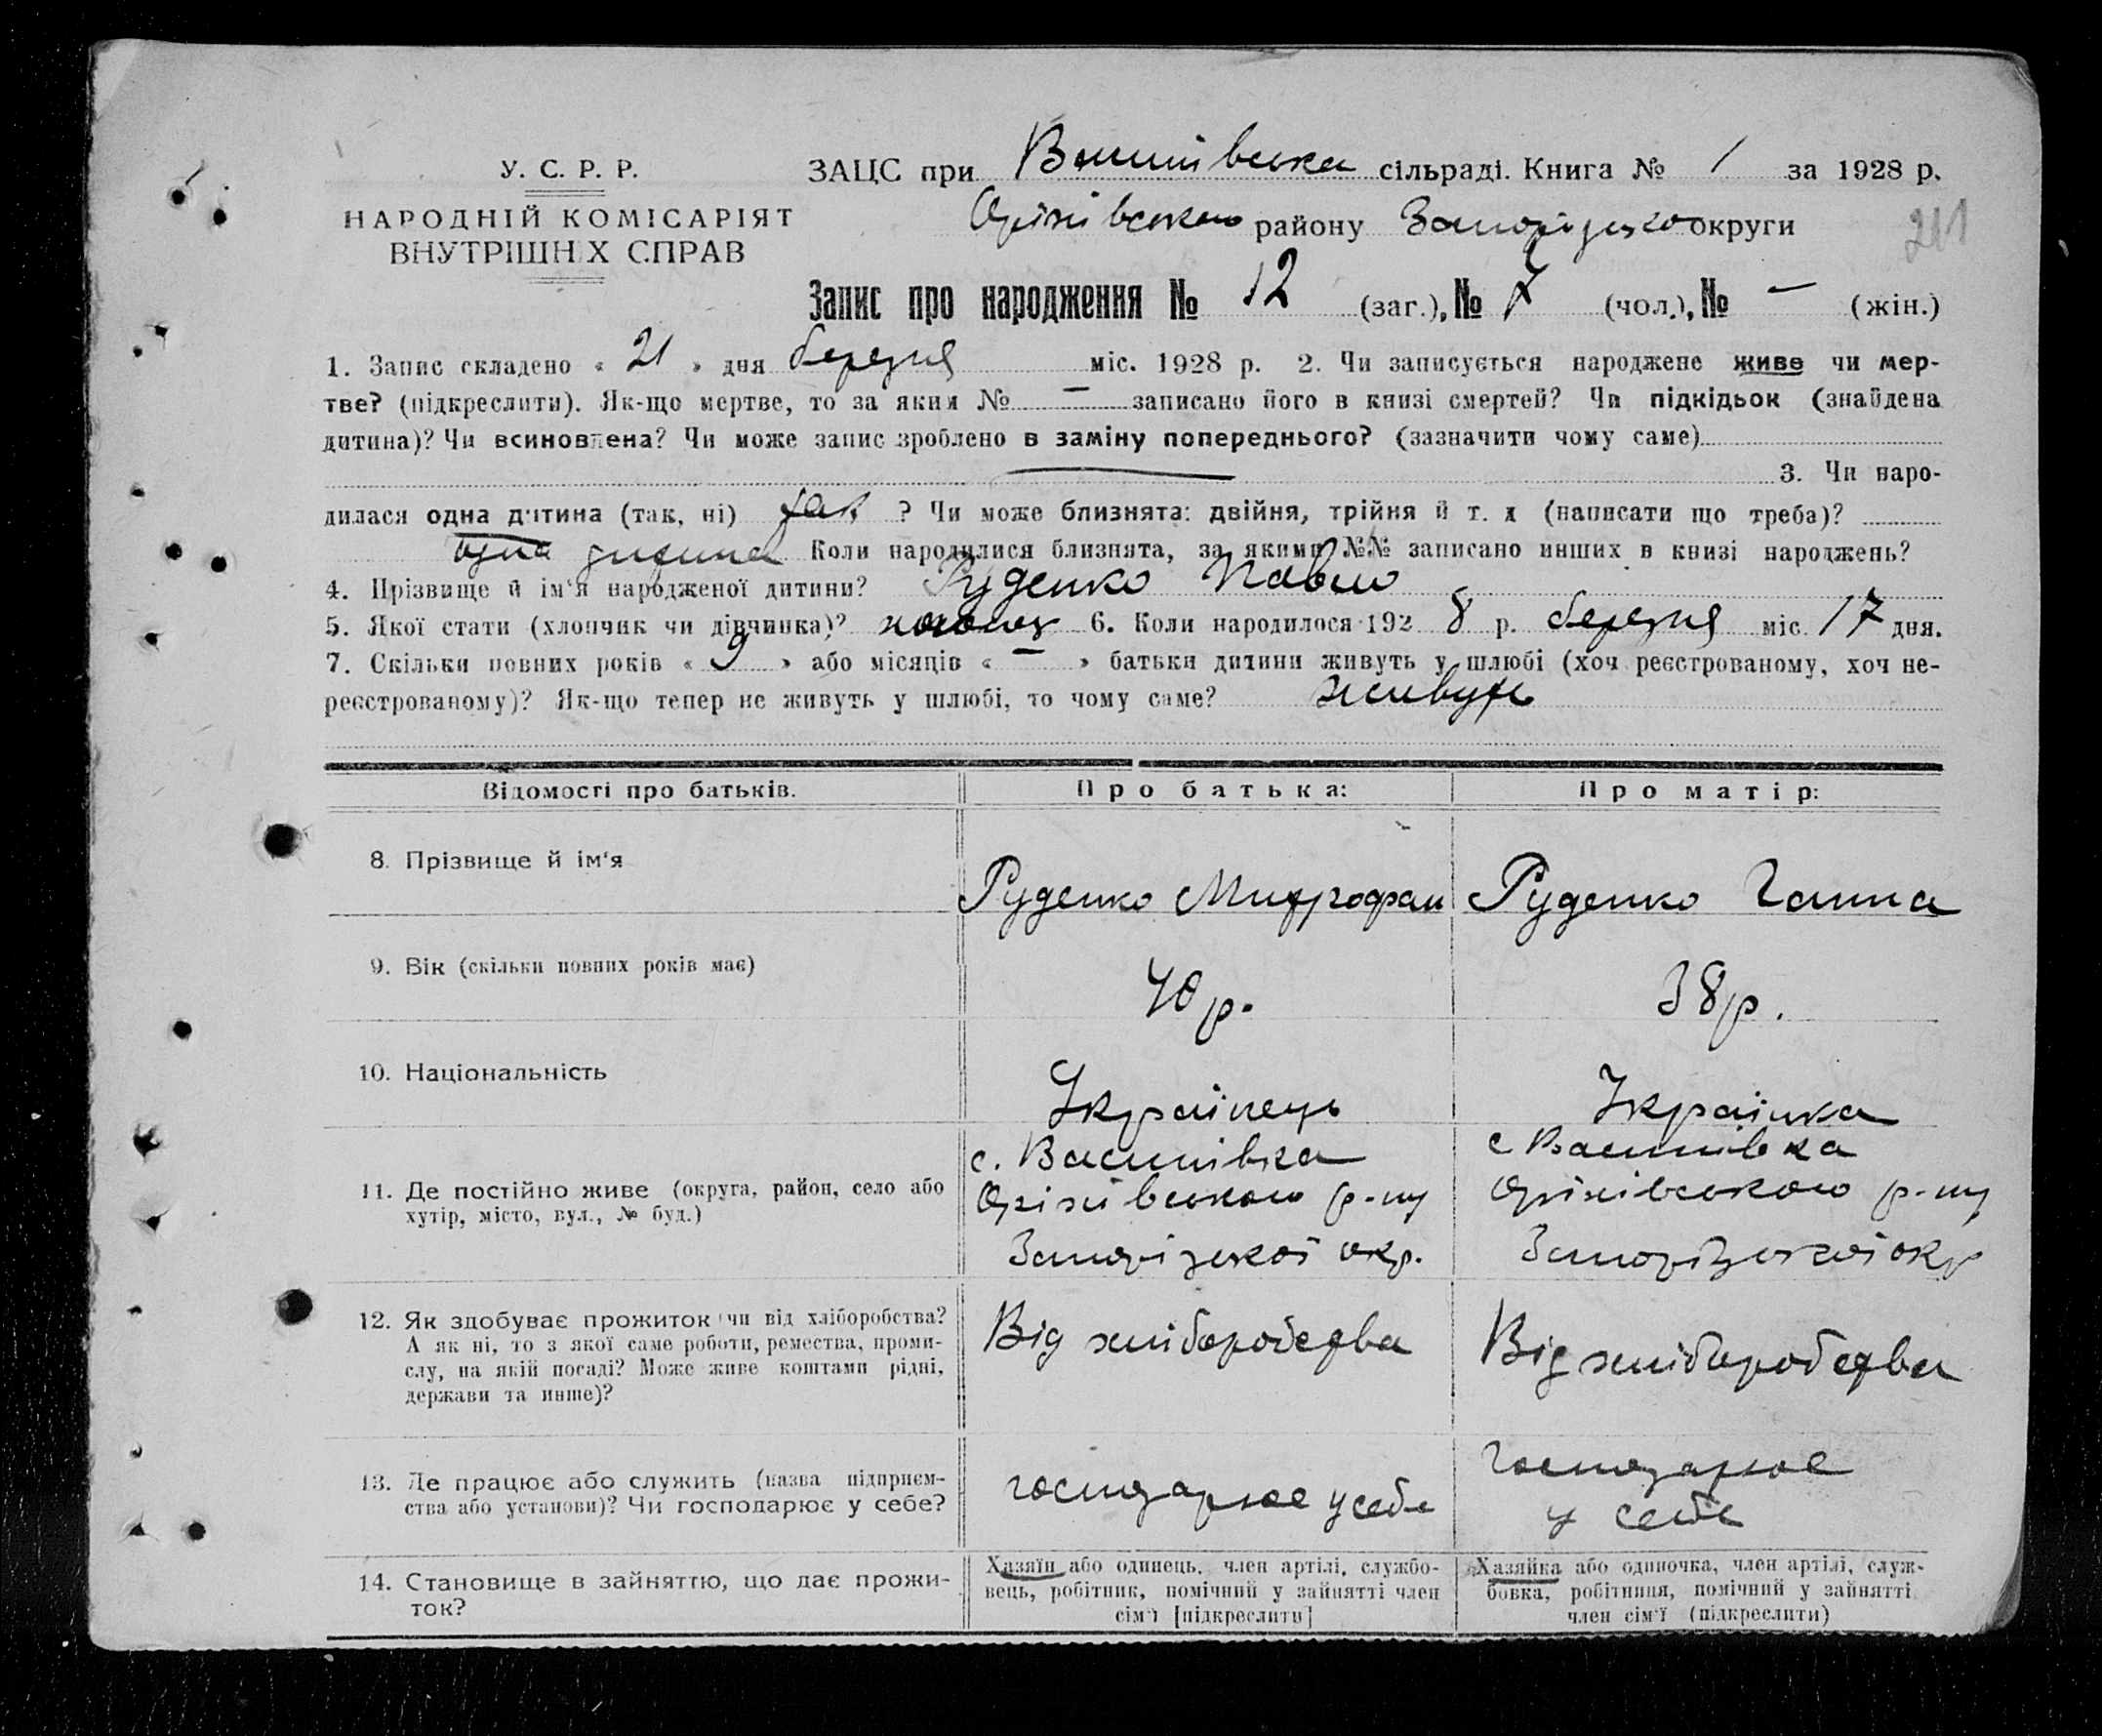 У. С. Р. Р.
НАРОДНІЙ КОМІСАРІЯТ
ВНУТРІШНІХ СПРАВ
ЗАЦС при Василівська сільраді. Книга № 1 за 1928 р.
Оріхівського району Запорізько округи
211
Запис про народження № 12 (заг.), № 7 (чол.), № — (жін.)
1. Запис складено « 21 » дня березня міс. 1928 р. 2. Чи записується народжене живе чи мер-
тве? (підкреслити). Як-що мертве, то за яким № — записано його в книзі смертей? Чи підкідьок (знайдена
дитина)? Чи всиновлена? Чи може запис зроблено в заміну попереднього? (зазначити чому саме)
3. Чи наро-
дилася одна дитина (так, ні) так ? Чи може близнята: двійня, трійня й т. д (написати що треба)?
одна дитина Коли народилися близнята, за якими №№ записано инших в книзі народжень?
4. Прізвище й ім'я народженої дитини? Руденко Павло
5. Якої стати (хлопчик чи дівчинка)? 6. Коли народилося 192 8 р. березня міс. 17 дня.
7. Скільки повних років « 9 » або місяців « — » батьки дитини живуть у шлюбі (хоч реєстрованому, хоч не-
реєстрованому)? Як-що тепер не живуть у шлюбі, то чому саме? живуть
Відомості про батьків. Про батька: Про матір:
8. Прізвище й ім'я Руденко Митрофан Руденко Ганна
9. Вік (скільки повних років має) 40 р. 38 р.
10. Національність Українець Українка
11. Де постійно живе (округа, район, село або
хутір, місто, вул., № буд.)
с. Василівка
Оріхівського р-ну
Запорізької окр.
с Василівка
Оріхівського р-ну
Запорізької окр
12. Як здобуває прожиток чи від хліборобства?
А як ні, то з якої саме роботи, ремества, проми-
слу, на якій посаді? Може живе коштами рідні,
держави та инше)?
Від хліборобства
Від хліборобства
13. Де працює або служить (назва підприєм-
ства або установи)? Чи господарює у себе?
господарює у себе
Господарює
у себе
14. Становище в зайняттю, що дає прожи-
ток?
Хазяїн або одинець, член артілі, службо-
вець, робітник, помічний у зайнятті член
сім'ї [підкреслити]
Хазяйка або одиночка, член артілі, служ-
бовка, робітниця, помічний у зайнятті
член сім'ї (підкреслити)